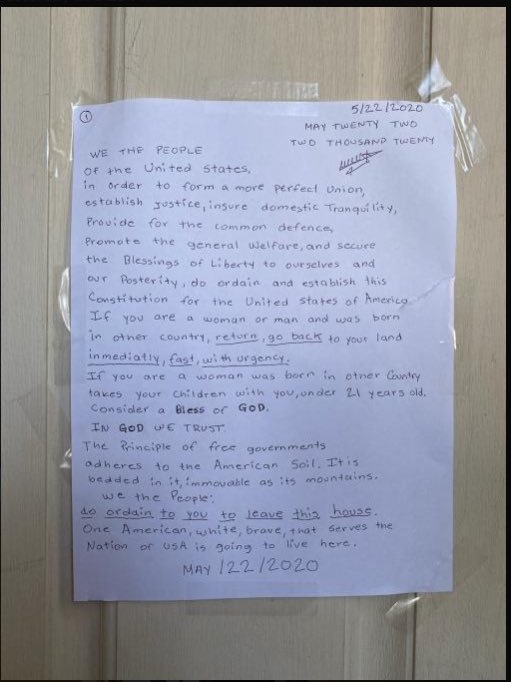 1
5/22/2020
MAY TWENTY TWO
TWO THOUSAND TWENTY
WE THE PEOPLE
of the United States,
in order to form a more perfect Union,
establish justice, insure domestic Tranquility,
Provide for the common defence,
Promote the general welfare, and secure
the Blessings of Liberty to ourselves and
our Posterity, do ordain and establish this
Constitution for the United States of America
If you are a woman or man and was born
in other country, return, go back to your land
inmediatly, fast, with urgency.
If you are a woman was born in other Country
takes your children with you, under 21 years old.
Consider a Bless of GOD.
IN GOD WE TRUST.
The Principle of free governments
adheres to the American Soil. It is
bedded in it, immovable as its mountains.
We the People:
do ordain to you to leave this house.
One American, white, brave, that serves the
Nation of USA is going to live here.
MAY /22/2020